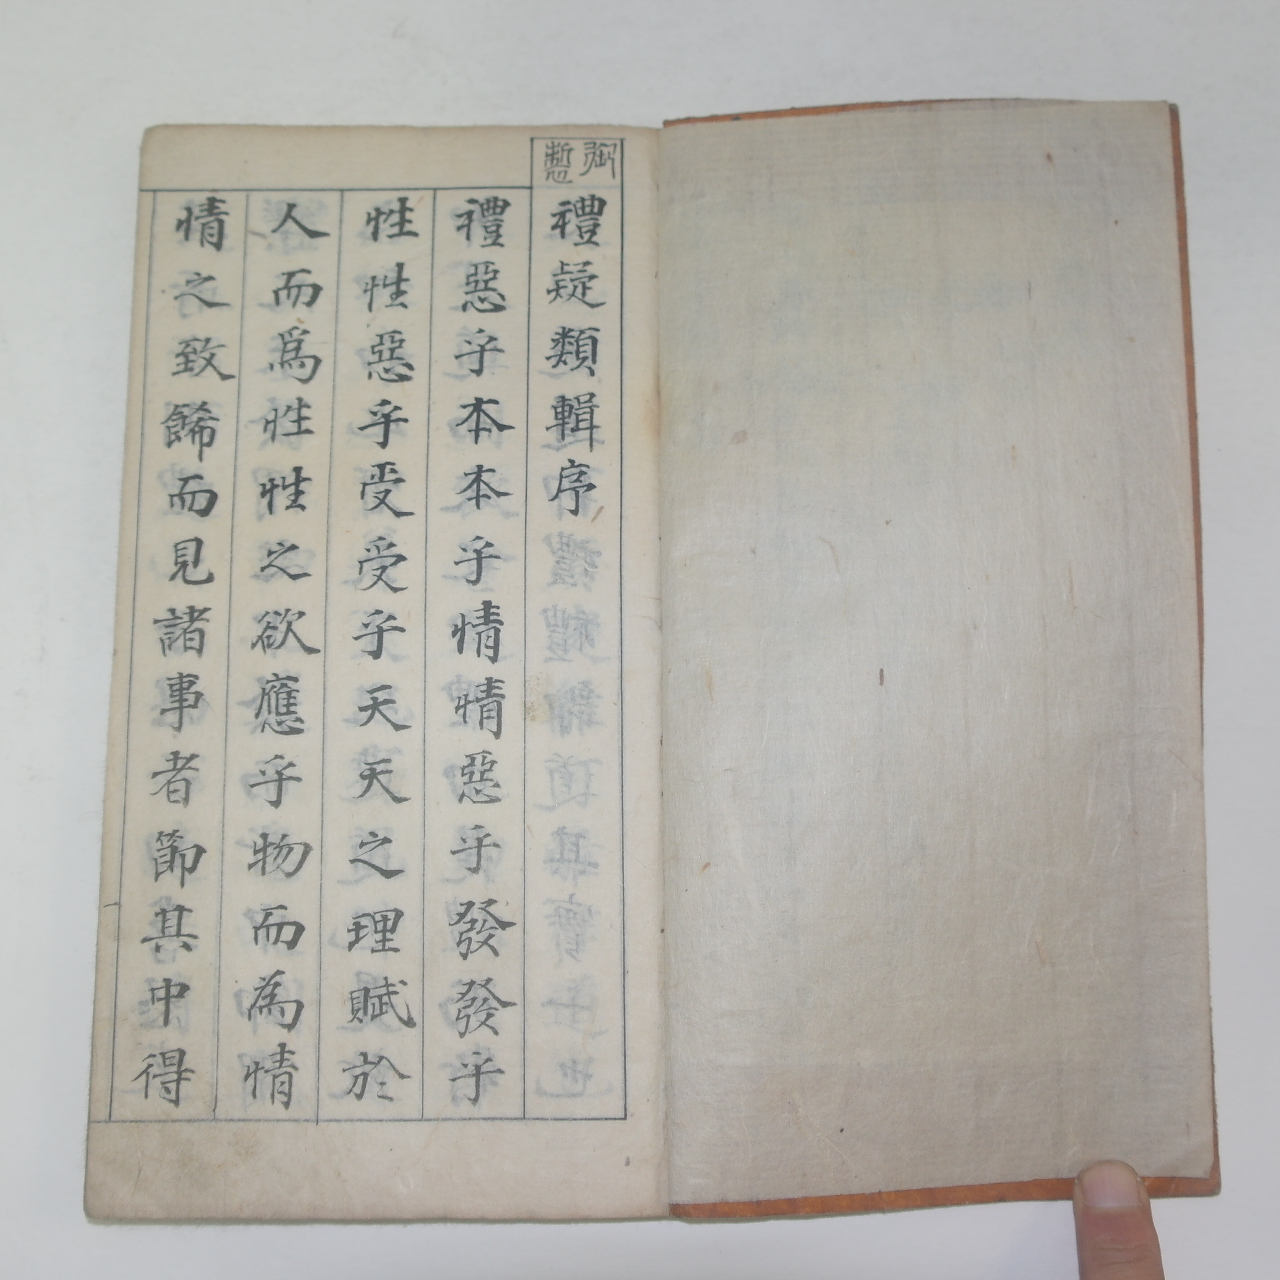 御製
禮疑類輯序
禮惡乎本本乎情情惡乎發發乎
性性惡乎受受乎天天之理賦於
人而爲性性之欲應乎物而為情
情之致餙而見諸事者節其中得